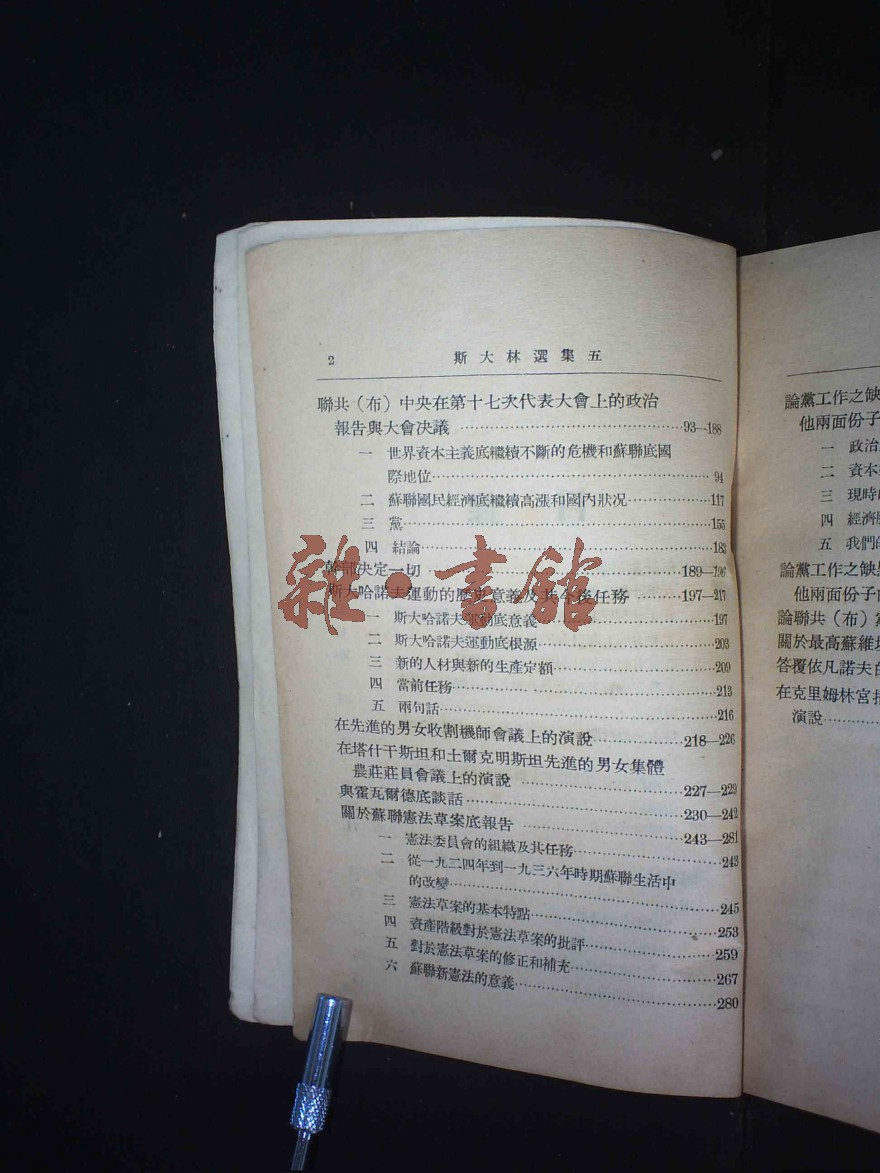 2 斯大林選集五
聯共（布）中央在第十七次代表大會上的政治
報告與大會决議 93—188
一 世界資本主義底繼續不斷的危機和蘇聯底國
際地位 94
二 蘇聯國民經濟底繼續高漲和國內狀况 117
三 黨 155
四 結論 183
幹部决定一切 189—196
斯大哈諾夫運動的歷史意義及其今後任務 197—217
一 斯大哈諾夫運動底意義 197
二 斯大哈諾夫運動底根源 203
三 新的人材與新的生產定額 209
四 當前任務 213
五 兩句話 216
在先進的男女收割機師會議上的演說 218—226
在塔什干斯坦和土爾克明斯坦先進的男女集體
農莊莊員會議上的演說 227—229
與霍瓦爾德底談話 230—242
關於蘇聯憲法草案底報告 243—281
一 憲法委員會的組織及其任務 243
二 從一九二四年到一九三六年時期蘇聯生活中
的改變 245
三 憲法草案的基本特點 253
四 資產階級對於憲法草案的批評 259
五 對於憲法草案的修正和補充 267
六 蘇聯新憲法的意義 280
論黨工作之缺
他兩面份子
一 政治
二 資本
三 現時
四 經濟
五 我們的
論黨工作之缺
他兩面份子
論聯共（布）
關於最高蘇維
答覆依凡諾夫
在克里姆林宮
演說
雜·書館